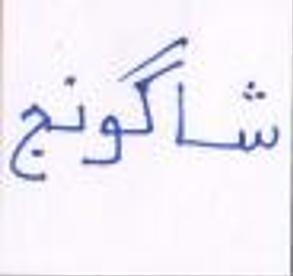 شاگونج